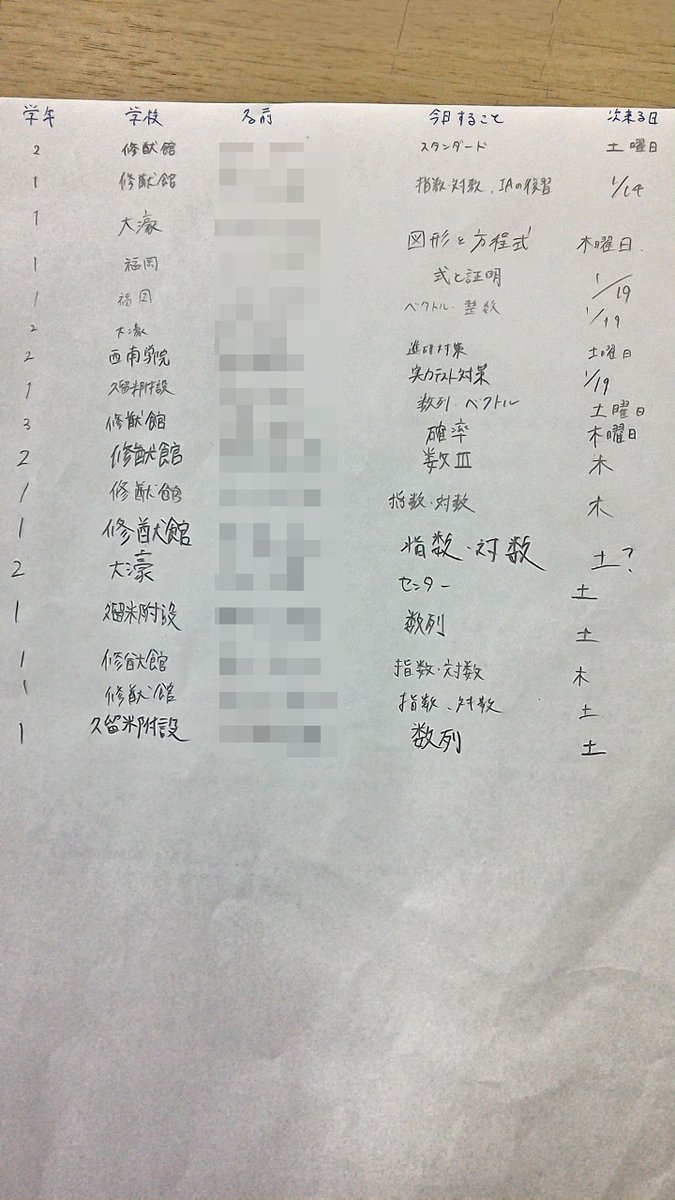 学年 学校 名前 今日すること 次来る日
2 修猷館 スタンダード 土曜日
1 修猷館 指数・対数、IAの復習 1/14
1 大濠 図形と方程式 木曜日.
1 福岡 式と証明 1/19
1 福岡 ベクトル・整数 1/19
2 大濠 進研対策 土曜日
2 西南学院 実力テスト対策 1/19
1 久留米附設 数列・ベクトル 土曜日
3 修猷館 確率 木曜日
2 修猷館 数III 木
1 修猷館 指数・対数 木
1 修猷館 指数・対数 土?
2 大濠 センター 土
1 久留米附設 数列 土
1 修猷館 指数・対数 木
1 修猷館 指数、対数 土
1 久留米附設 数列 土